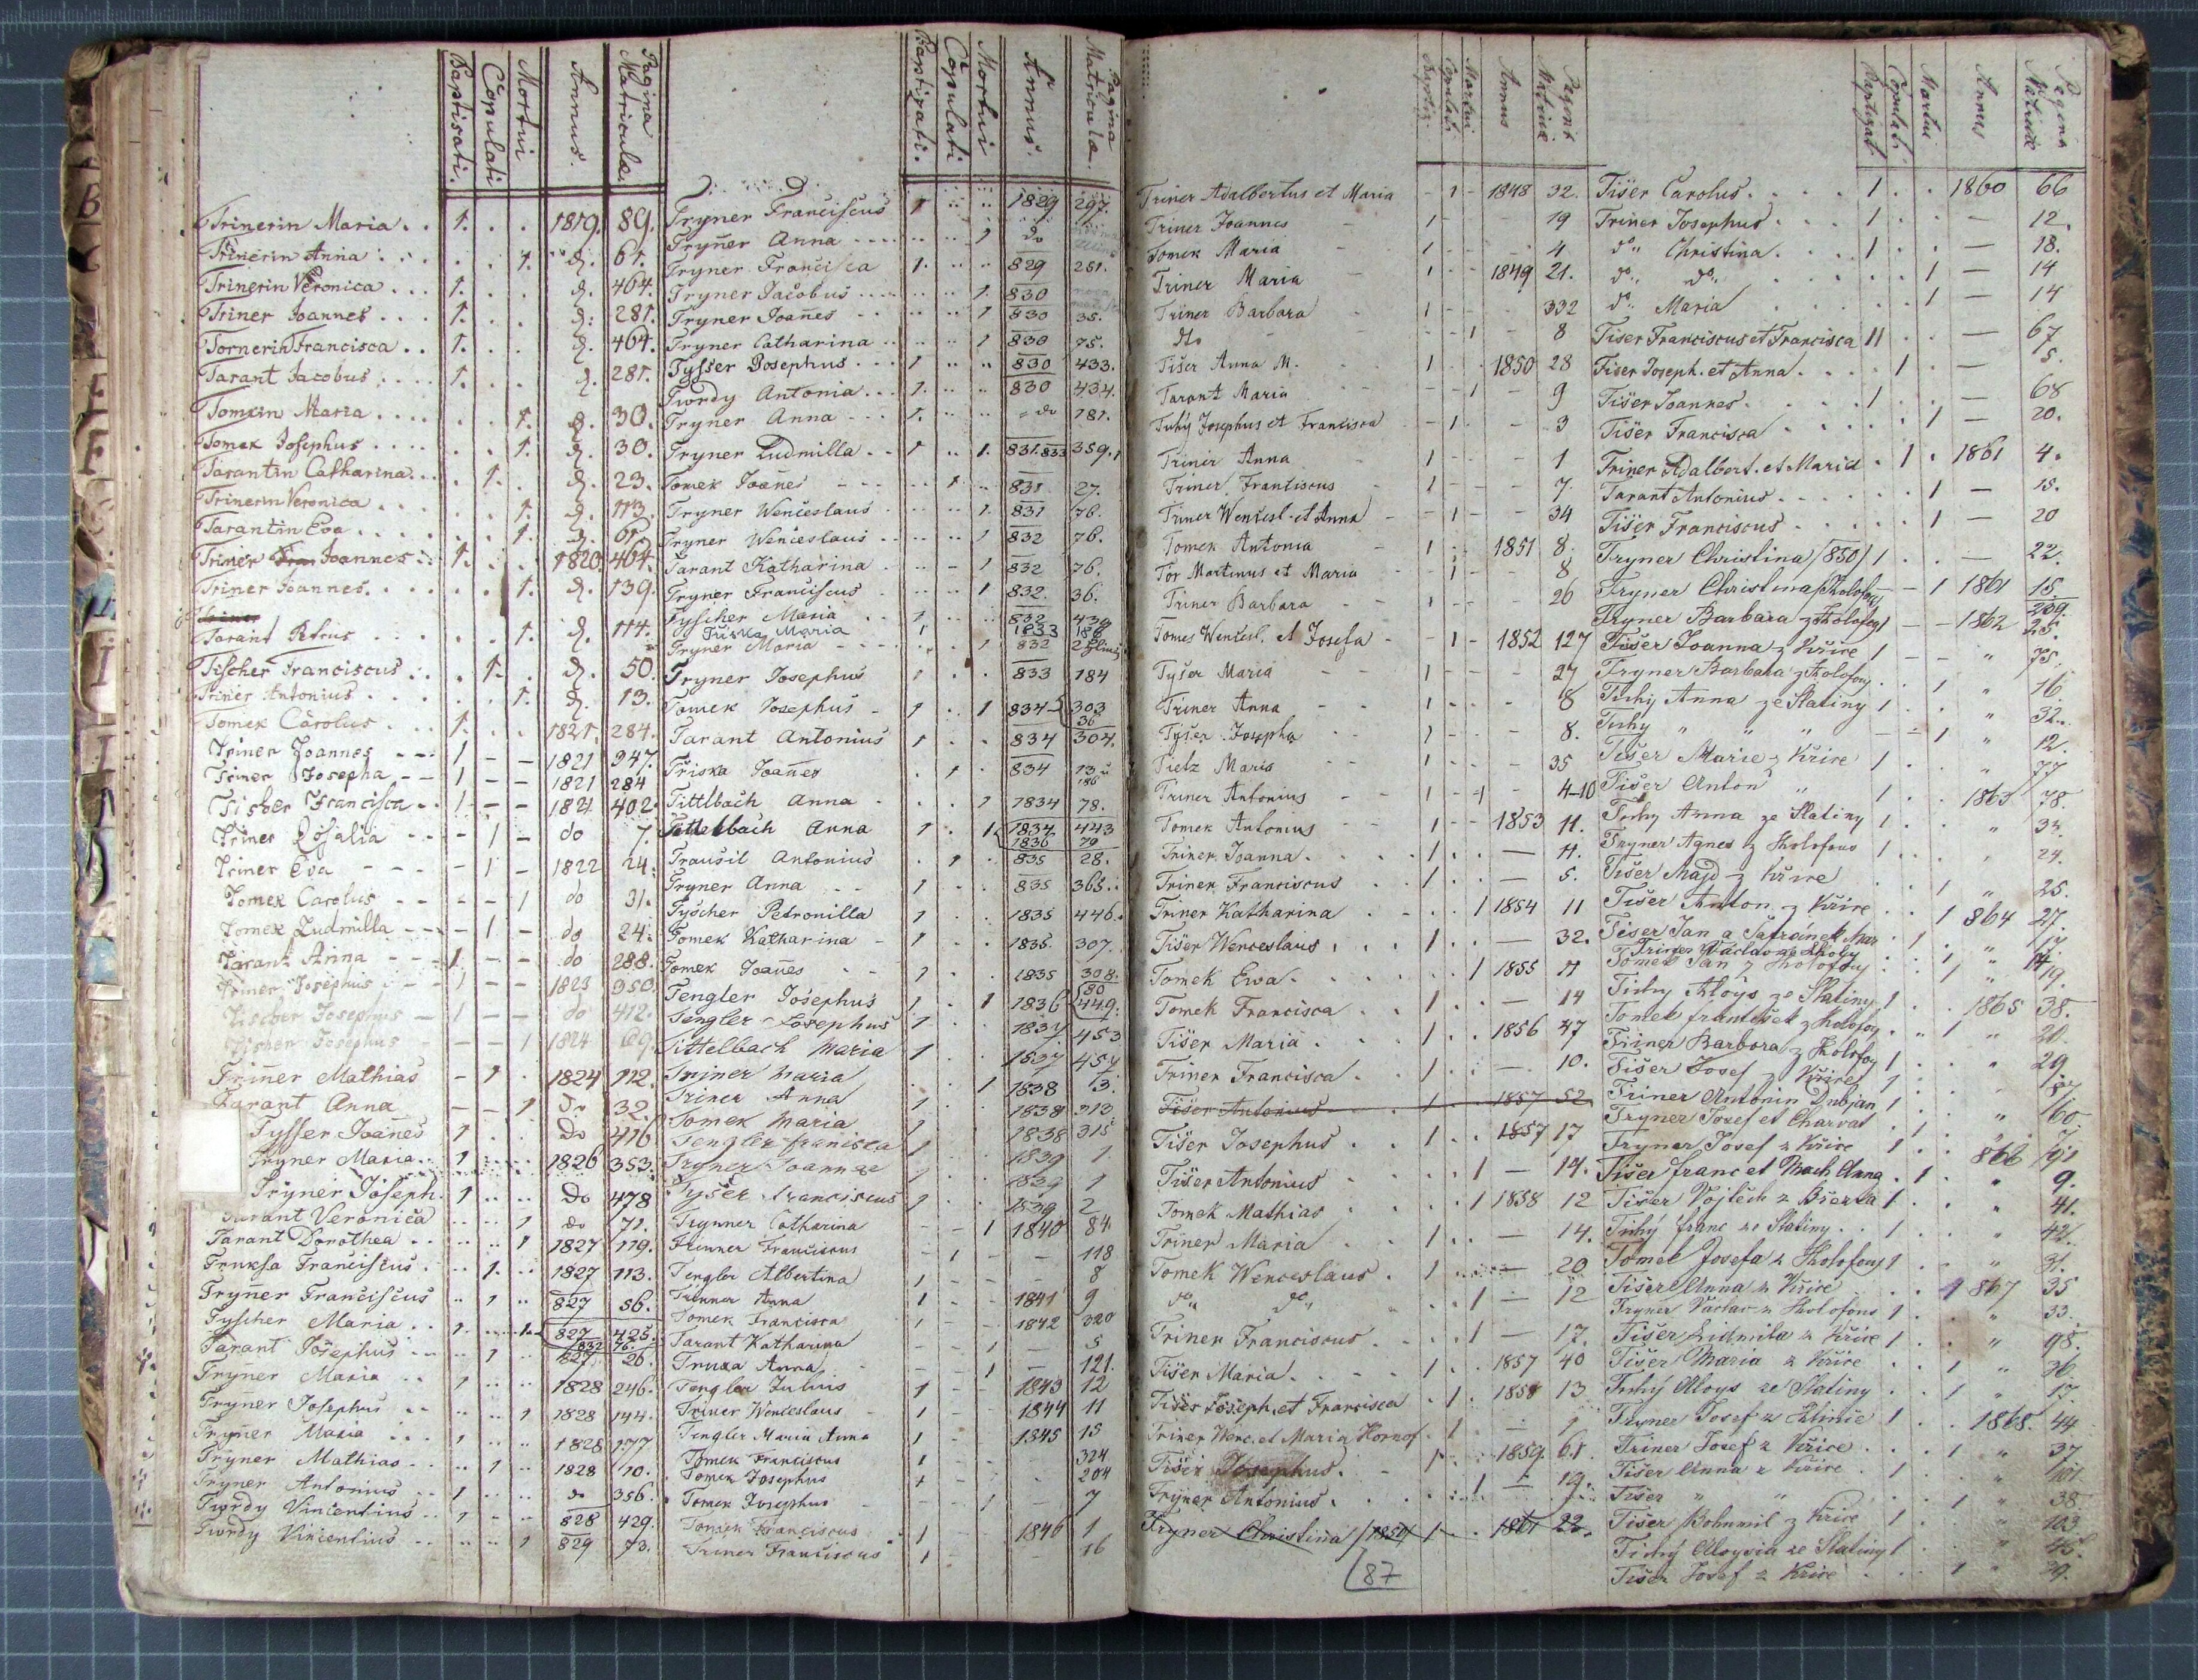 Baptisati. Copulati Mortui Annus. Pagina Matriculæ.
Trinerin Maria . . 1. . . 1819. 89.
Trinerin Anna . . . . . 1. d. 61.
Trinerin Veronica . . . 1. . . d. 464.
Triner Joannes . . . 1. . . d. 281.
Tornerin Francisca . . 1. . . d. 464.
Tarant Jacobus . . . . 1. . . d. 281.
Tomkin Maria . . . . . . 1. d. 30.
Tomek Josephus . . . . . . 1. d. 30.
Tarantin Catharina . . . . 1. . d. 23.
Trinerin Veronica . . . . . 1. d. 113.
Tarantin Eva . . . . . . 1. d. 61.
Triner Joannes . . 1. . . 1820. 464.
Triner Joannes . . . . . 1. d. 139.
Triner
Tarant Petrus . . . . . 1. d. 114.
Tischer Franciscus . . . 1. . d. 50.
Triner Antonius . . . . . 1. d. 13.
Tomek Carolus . . 1. . . 1821. 284.
Triner Joannes - - 1 - - 1821 947.
Triner Josepha - - 1 - - 1821 284
Tischer Francisca . . 1 - - 1821 402.
Triner Rosalia - - - 1 - do 7.
Triner Eva - - - - 1 - 1822 24.
Tomek Carolus - - - - 1 do 31.
Tomek Ludmilla - - - 1 - do 24.
Tarant Anna - - - 1 - - do 288.
Triner Josephus - - 1 - - 1823 350.
Tischer Josephus - 1 - - do 412.
Tischer Josephus - - - 1 1824 69.
Triner Mathias - 1 . 1824 112.
Tarant Anna - - 1 do 32.
Tysser Joanes 1 . . do 416
Tryner Maria . . 1 . . . . 1826 353.
Tryner Joseph. 1 . . . . do 478
Tarant Veronica . . . . 1 do 71.
Tarant Dorothea . . . . . . 1 1827 119.
Truksa Franciscus . . . 1. . . 1827 113.
Tryner Franciscus . . 1 . . 827 56.
Tyscher Maria . . 1. . . . . 1. 827 425.
832 76.
Tarant Josephus . . . . 1 . . 827 26.
Tryner Maria . . 1 . . . . 1828 246.
Tryner Josephus . . . . . . 1 1828 144.
Tryner Maria . . . 1 . . . . 1828 177
Tryner Mathias . . . . 1 . . 1828 10.
Tryner Antonius . . 1 . . . . do 356.
Twrdy Vincentius . . 1 . . . . 828 429.
Twrdy Vincentius . . . . . . 1 829 73.
Baptizati. Copulati Mortui Annus. Pagina Matriculæ.
Tryner Franciscus 1 . . . . 1829 297.
Tryner Anna . . . . . . . . 1 do
Tryner Francisca 1. . . . . 829 251.
Tryner Jacobus . . . . . . . . 1. 830
Tryner Joanes . . . . . . 1 830 35.
Tryner Catharina . . . . . . 1 830 75.
Tysser Josephus . . . 1 . . . . 830 433.
Twrdy Antonia . . . 1. . . . . 830 434.
Tryner Anna - - - 1. . . . . do 181.
Tryner Ludmilla . . 1 . . 1. 831.833 359.
Tomek Joanes - - - . . 1 . . 831 27.
Tryner Wenceslaus . . . . . . 1. 831 76.
Tryner Wenceslaus . . . . . . 1 832 76.
Tarant Katharina . . . - 1 832 76.
Tryner Franciscus . . . . . 1 832. 36.
Tyscher Maria . . 1 . . . . 832 439
Tuska Maria 1 1833 186
Tryner Maria - - - . . 1 832 2
Tryner Josephus 1 . . 833 184
Tomek Josephus - 1 . . 1 834 303
36
Tarant Antonius 1 . . 834 304.
Triska Joanes . 1 . 834 13
186
Tittlbach Anna . . . 1 1834 78.
Tittelbach Anna 1 . 1 1834 443
1836 79
Trausil Antonius . 1 . 835 28.
Tryner Anna - - 1 . . 835 365.
Tyscher Petronilla 1 . . 1835 446.
Tomek Katharina - 1 . . 1835. 307.
Tomek Joanes - - 1 . . 1835 308.
Tengler Josephus 1 . 1 1836 80
449.
Tengler Josephus 1 . . 1837 453
Tittelbach Maria 1 . . 1837 457
Triner Maria . . 1 1838 13.
Triner Anna 1 . . 1838 313
Tomek Maria 1 . . 1838 315
Tengler Francisca 1 . . 1839 1.
Tryner Joannes 1 . . 1839 1
Tyser Franciscus 1 . . 1839 2
Trynner Catharina - - 1 1840 84.
Trinner Franciscus - 1 - - 118
Tengler Albertina 1 - - - 8
Trinner Anna 1 - - 1841 9
Tomek Francisca 1 - - 1842 320
Tarant Katharina - - 1 5
Truxa Anna - - - 1 - 121.
Tengler Julius 1 - - 1843 12
Triner Wenceslaus - 1 - 1844 11
Tengler Maria Anna 1 - 1845 15
Tomek Franciscus 1 - - 324
Tomek Josephus 1 - - 204
Tomek Josephus - - - 1 - 7
Tomek Franciscus 1 - 1846 1
Triner Franciscus 1 - 16
Baptiz. Copulati Mortui Annus Pagina Matricæ
Triner Adalbertus et Maria - 1 - 1848 32.
Triner Joannes - 1 - - 19
Tomek Maria 1 - - - 4
Triner Maria - 1 - - 1849 21.
Triner Barbara - 1 - - 332
dto - - - 1 - 8
Tišer Anna M. - 1 . . 1850 28
Tarant Maria - - 1 - 9
Tuhy Josephus et Francisca - 1 . - 3
Triner Anna - 1 - - 1
Triner Franciscus - 1 - - - 7.
Triner Wencesl. et Anna - - 1 - - 34
Tomek Antonia - 1 . . 1851 8.
Tor Martinus et Maria - - 1 - 8
Triner Barbara - - 1 - - - 26
Tomes Wencesl. et Josefa - - 1 - 1852 127
Tyser Maria - - 1 - - - 27
Triner Anna - - 1 - - . 8
Tyšer Josepha - - 1 - - - 8.
Tietz Maria - - 1 - - - 35
Triner Antonius - - 1 - 1 - 4-10
Tomek Antonius - - 1 - - 1853 11.
Triner Joanna . . . . 1 . . — 11.
Triner Franciscus . . 1 . . — 5.
Triner Katharina . - . . 1 1854 11
Tišer Wenceslaus . . . 1 . . — 32.
Tomek Ewa . . . . . . 1 1855 11
Tomek Francisca . . 1 . . — 14
Tišer Maria . . . . 1 . . 1856 47
Triner Francisca . . 1 . . — 10.
Tišer Antonius 1 . . 1857 52
Tišer Josephus . . 1 . . 1857 17
Tišer Antonius . . . . 1 — 14.
Tomek Mathias . . . . 1 1858 12
Triner Maria . . 1 . . — 14.
Tomek Wenceslaus . 1 . . — 20
do " do " . . 1 — 12
Triner Franciscus . . . . 1 — 17.
Tišer Maria . . . . 1 . . 1857 40
Tišer Joseph. et Francisca . 1 . 1858 13
Triner Wenc. et Maria Hornof . 1 . - 1
Tišer Josephus . - 1 . . 1859. 61.
Tryner Antonius . . . . . . 1 — 19.
Tryner Christina /1850/ 1 . . 1861 22.
87
Baptizat. Copulati. Mortui Annus Pagina Matricæ
Tišer Carolus . . . . 1 . . 1860 66
Triner Josephus . . . 1 . . — 12.
do " Christina . . . . 1 . . — 18.
do " do " . . . . . . 1 — 14
do " Maria . . . . . . 1 — 14
Tiser Franciscus et Francisca 11 . . — 67
Tiser Joseph. et Anna . . . . 1 . — 5.
Tišer Joannes . . . . . 1 . . — 68
Tišer Francisca . . . . . . 1 — 20.
Triner Adalbert. et Maria . 1 . 1861 4.
Tarant Antonius . . . . . . . 1 — 15.
Tišer Franciscus . . . . . . 1 — 20
Tryner Christina /850/ 1 . . — 22.
Tryner Christina z Holofous - - 1 1861 15.
Tryner Barbara z Holofous 1 - - 1862 239.
Tišer Joanna z Křice 1 - - " 25.
75.
Tryner Barbara z Holofous . . 1 " 16
Tichy Anna ze Slatiny 1 . . " 32.
Tuhy " " " - - 1 " 12.
Tišer Marie z Křice 1 . . " 77
Tišer Anton " 1 . . 1863 78.
Tichy Anna ze Slatiny 1 . . " 34.
Tryner Agnes z Holofous 1 . . " 24.
Tišer Majd z Křice . . 1 " 25.
Tišer Anton z Křice . . 1 864 27.
Tišer Jan a Šafránek Mar . 1 . " 17.
Triner Václav ze Lhoty
Tomek Jan z Holofous . . 1 " 19.
Tichy Aloys ze Slatiny 1 . . 1865 38.
Tomek František z Holofous . . 1 " 20.
Triner Barbora z Holofous 1 . . " 29.
Tišer Josef z Křice 1 . . "
Triner Antonin Dubjan 1 . . " 160
Tryner Josef et Charvat . 1 . " 7.
Tryner Josef z Křice 1 . . 866 191
Tišer franc et Mach Anna . 1 . " 9.
Tišer Vojtěch z Březka 1 . . " 41.
Tichý franc ze Slatiny . . 1 . . " 42.
Tomek Josefa z Holofous 1 . . " 31.
Tišer Anna z Křice . . 1 867 35
Tryner Václav z Holofous 1 . . " 33.
Tišer Lidmila z Křice 1 . . " 98.
Tišer Maria z Křice . . 1 " 36.
Tichý Aloys ze Slatiny . . 1 " 17.
Tryner Josef z Hlinic 1 . . 1868. 44.
Triner Josef z Křice . . . 1 " 37
Tišer Anna z Křice . 1 . . " 101.
Tišer " " . . 1 " 38.
Tišer Bohumil z Křice 1 . . " 103.
Tichý Aloysia ze Slatiny 1 . . " 46.
Tišer Josef z Křice . . . 1 " 39.